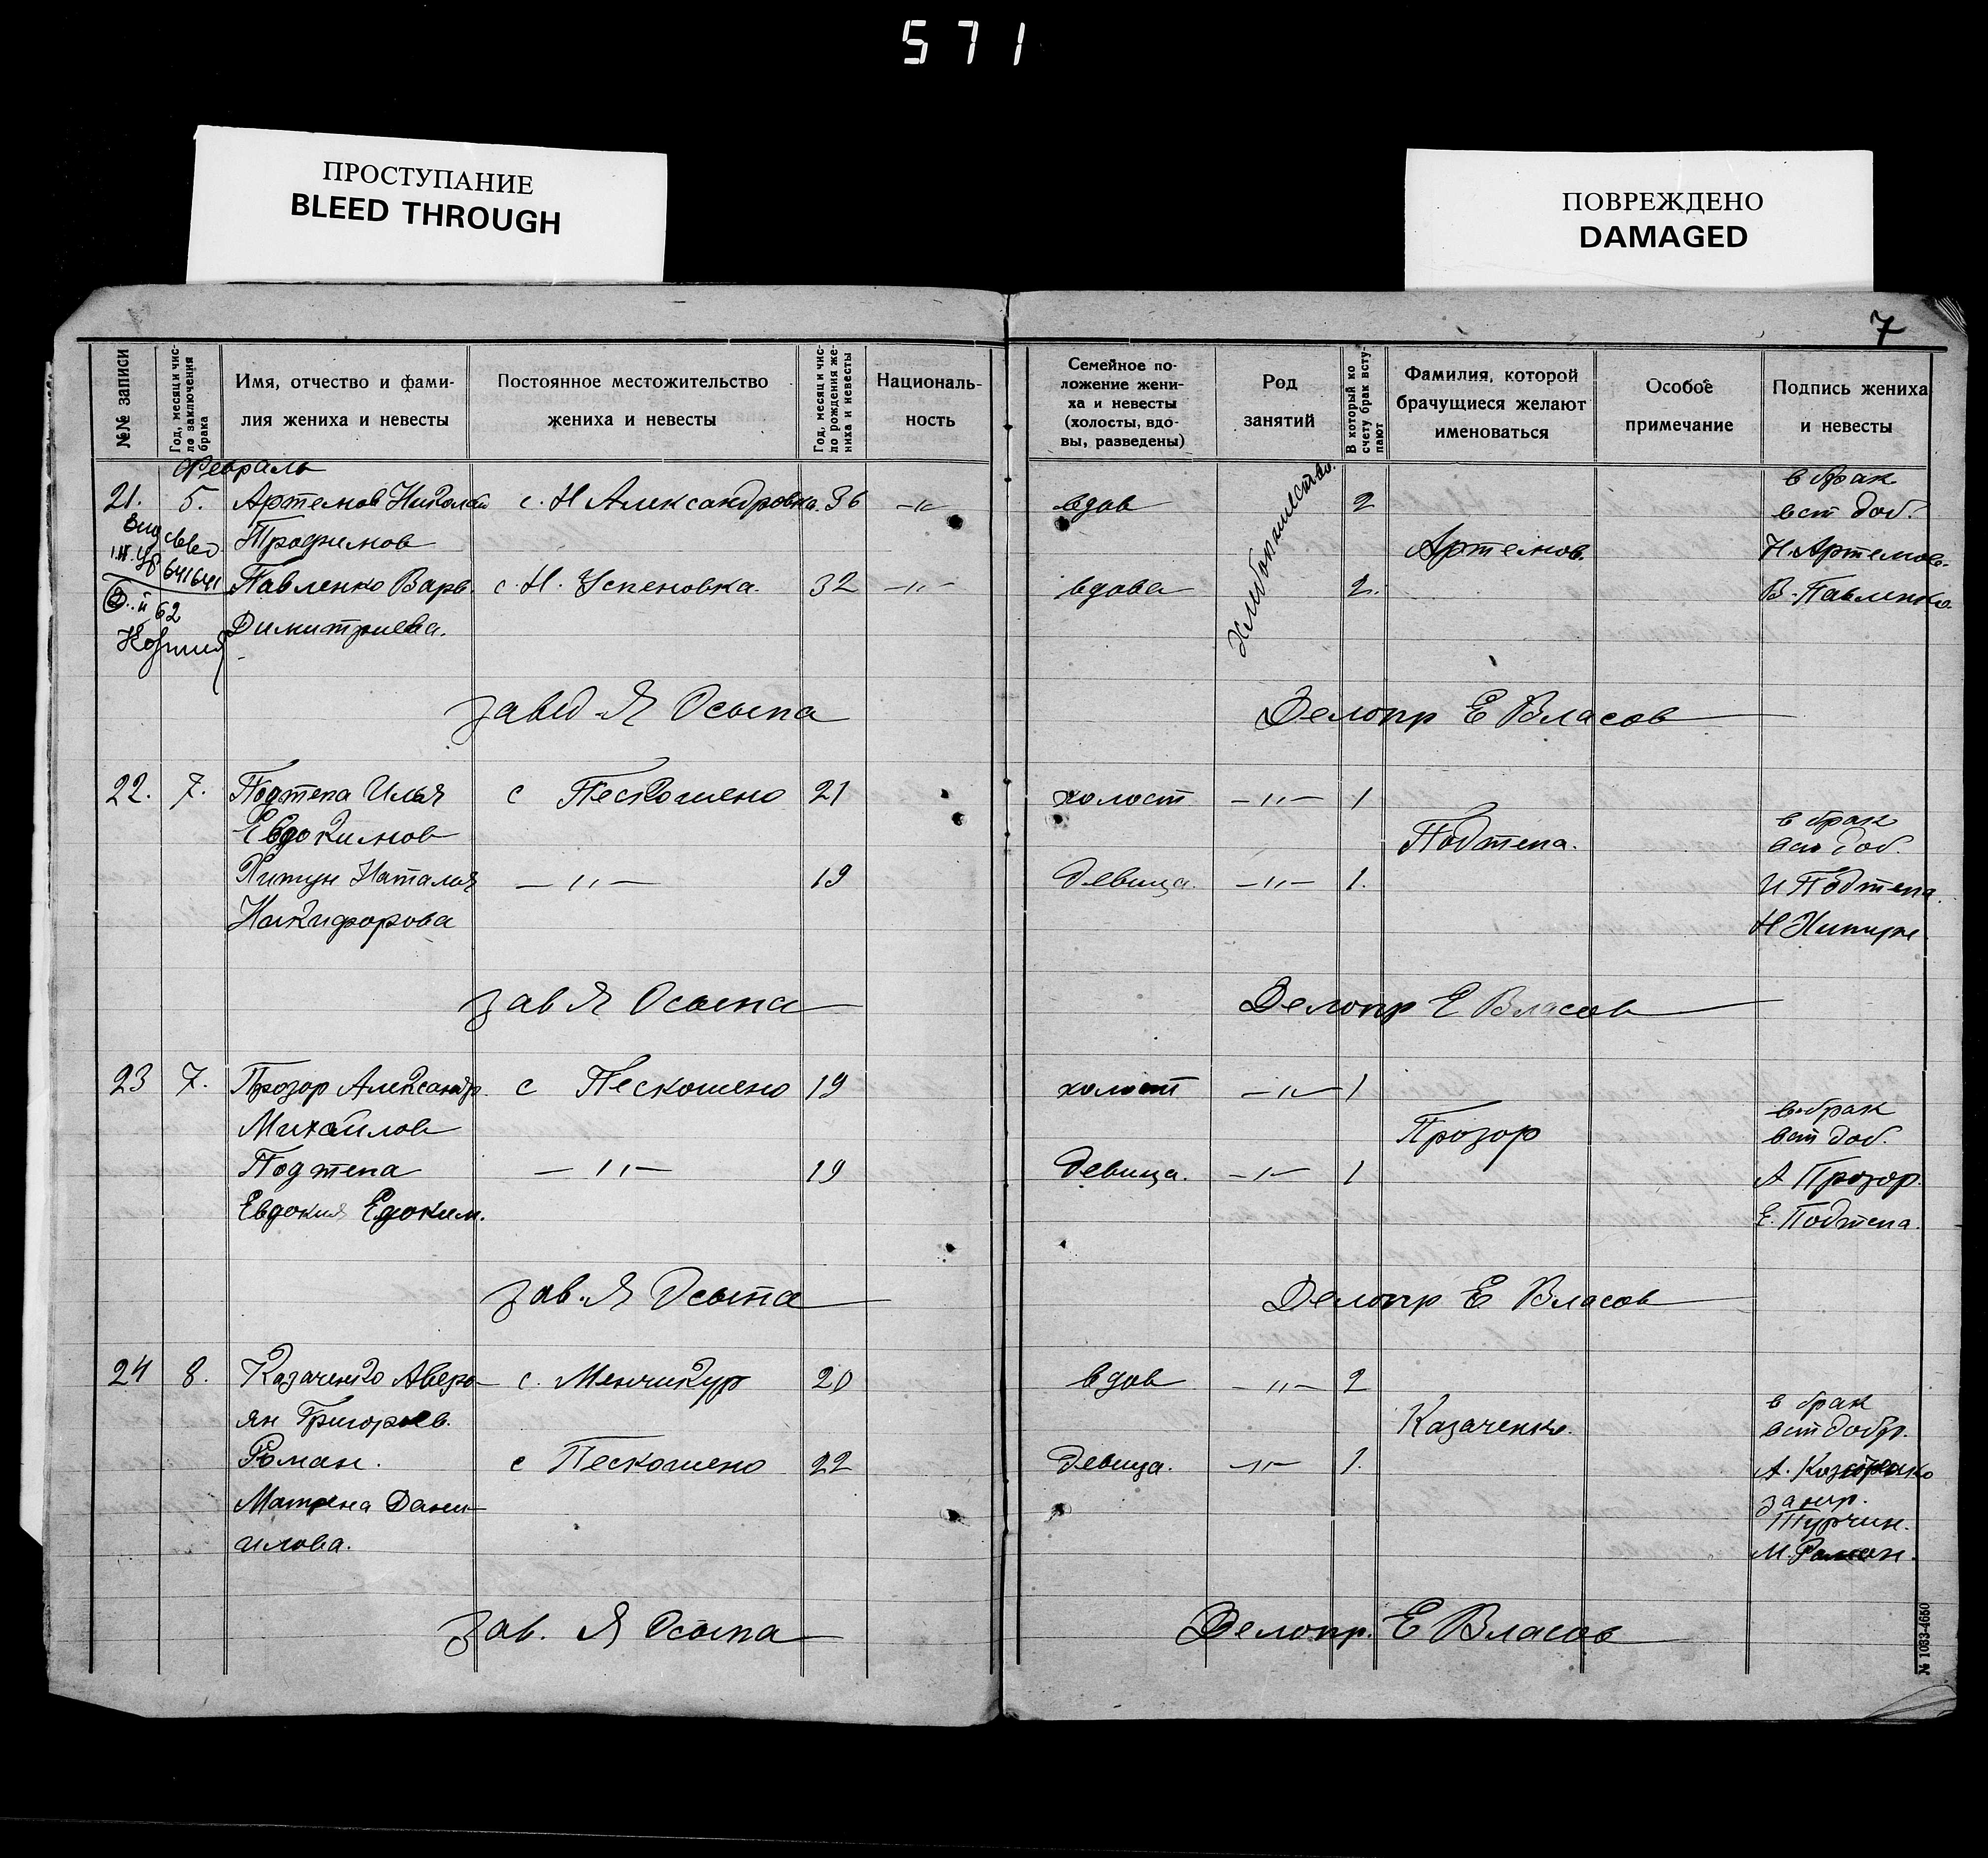 571
ПРОСТУПАНИЕ
BLEED THROUGH
ПОВРЕЖДЕНО
DAMAGED
7
№№ записи
Год, месяц и число заключения брака
Имя, отчество и фами-
лия жениха и невесты
Постоянное местожительство
жениха и невесты
Год, месяц и чис-
ло рождения же-
ниха и невесты
Националь-
ность
Семейное по-
ложение жени-
ха и невесты
(холосты, вдо-
вы, разведены)
Род
занятий
В который ко
счету брак всту-
пают
Фамилия, которой
брачущиеся желают
именоваться
Особое
примечание
Подпись жениха
и невесты
Февраль
21. 5. Артемов Николай с. Н Александровка. 36 -"- вдов Хлебопашество. 2 в брак
вст доб.
Трофимов Артемов. Н. Артемов.
641641
Павленко Варв. с. Н. Успеновка. 32 -"- вдова 2. В. Павленко.
62
Димитриева.
завед Я Осыпа Делопр Е Власов
22. 7. Подтепа Илья с Пескошено 21 холост -"- 1
Евдокимов Подтепа. в брак
вст доб.
Хитун Наталия -"- 19 девица. -"- 1. И Подтепа.
Никифорова
зав Я Осыпа Делопр Е Власов
23 7. Прозор Александр. с Пескошено 19 холост -"- 1
Михайлов Прозор в брак
вст доб.
Подтепа -"- 19 девица. -"- 1 А Прозор.
Евдокия Едоким. Е. Подтепа.
зав. Я Осыпа Делопр Е Власов
24 8. Казаченко Аверо- с. Менчикур 20 вдов -"- 2
ян Григорьев. Казаченко. в брак
вст добр.
Роман. с Пескошено 22 девица. -"- 1.
Матрена Дани- за нгр.
Турчин.
илова. М. Роман.
зав. Я Осыпа Делопр. Е Власов
№ 1033-4650